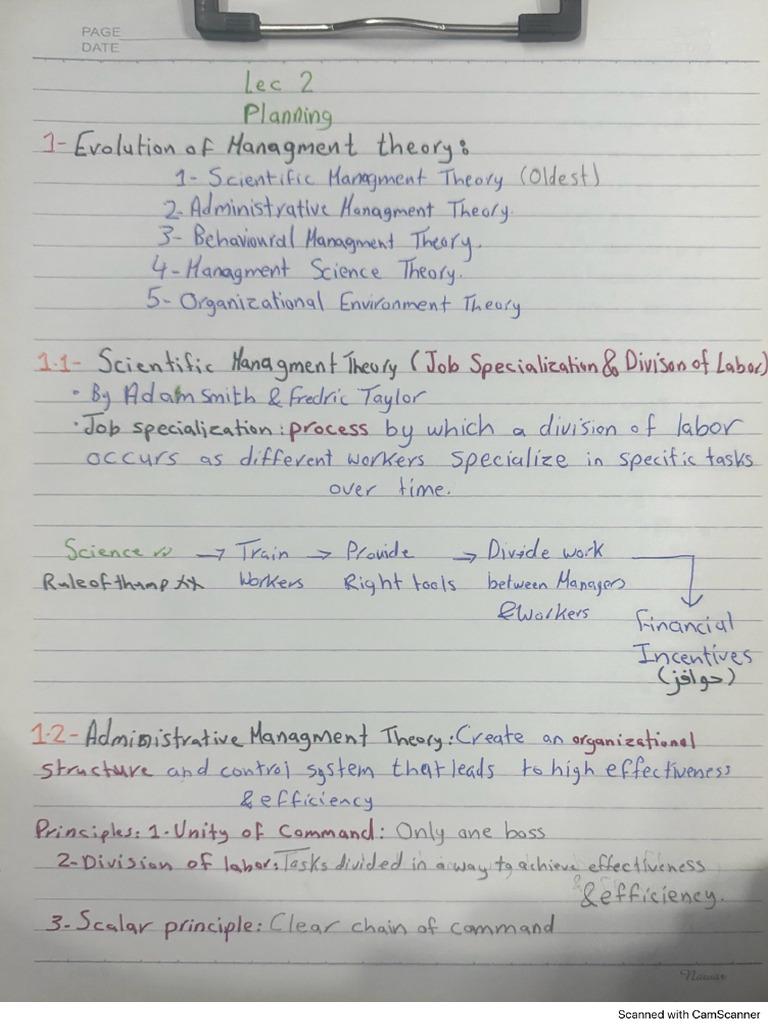 PAGE
DATE
Lec 2
Planning
1- Evolution of Managment theory:
1- Scientific Managment Theory (Oldest)
2- Administrative Managment Theory.
3- Behavioural Managment Theory.
4- Managment Science Theory.
5- Organizational Environment Theory
1.1- Scientific Managment Theory (Job Specialization & Divison of Labor)
• By Adam Smith & Fredric Taylor
• Job specialization: process by which a division of labor
occurs as different workers specialize in specific tasks
over time.
Science ✓✓ → Train → Provide → Divide work
Rule of thump ×× Workers Right tools between Managers
& Workers
Financial
Incentives
(حوافز)
1.2- Administrative Managment Theory: Create an organizational
structure and control system that leads to high effectiveness
& efficiency
Principles: 1. Unity of Command: Only one boss
2- Division of labor: Tasks divided in a way to achieve effectiveness
& efficiency.
3- Scalar principle: Clear chain of command
Scanned with CamScanner